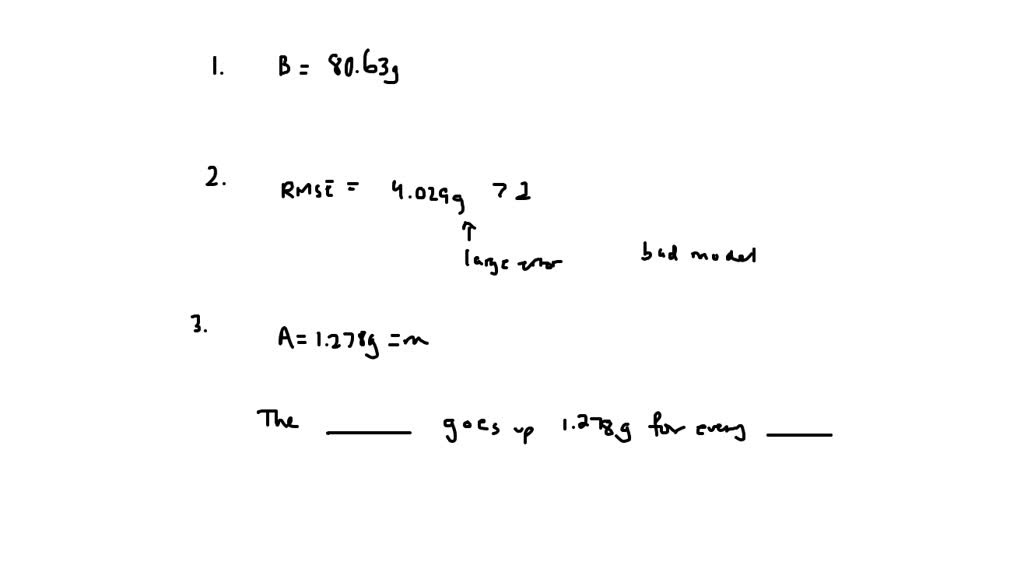 1. B = 80.63g
2. RMSE = 4.029g > 1
↑
large error bad model
3. A = 1.278g = m
The ______ goes up 1.278g for every _____